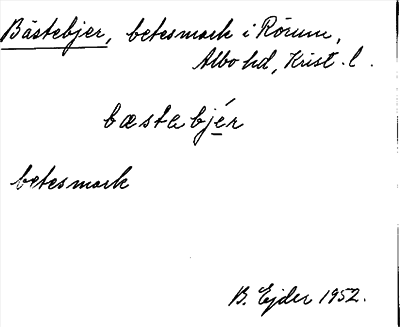 Bästebjer, betesmark i Rörum,
Albo hd, Krist. l.
bæstabjér
betesmark
B. Ejder 1952.